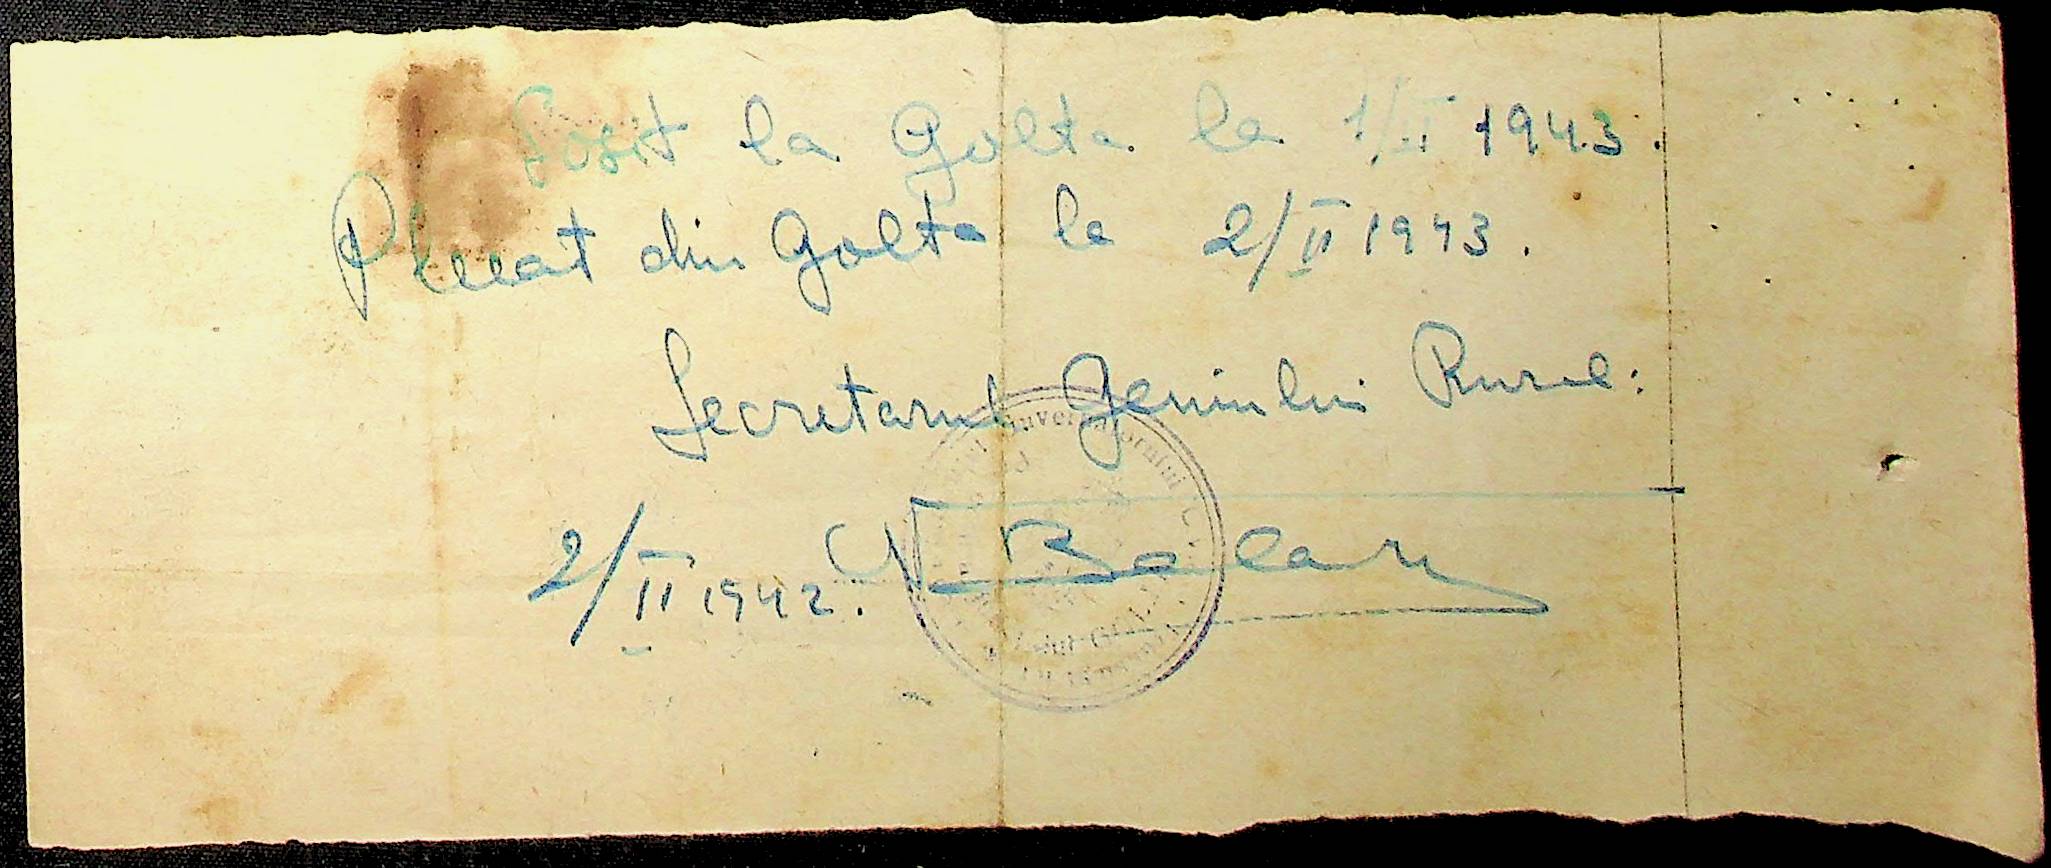 Sosit la Golta la 1/II 1943.
Plecat din Golta la 2/II 1943.
Secretarul Geniului Rural:
2/II 1942. N Balan
Guvernatorului